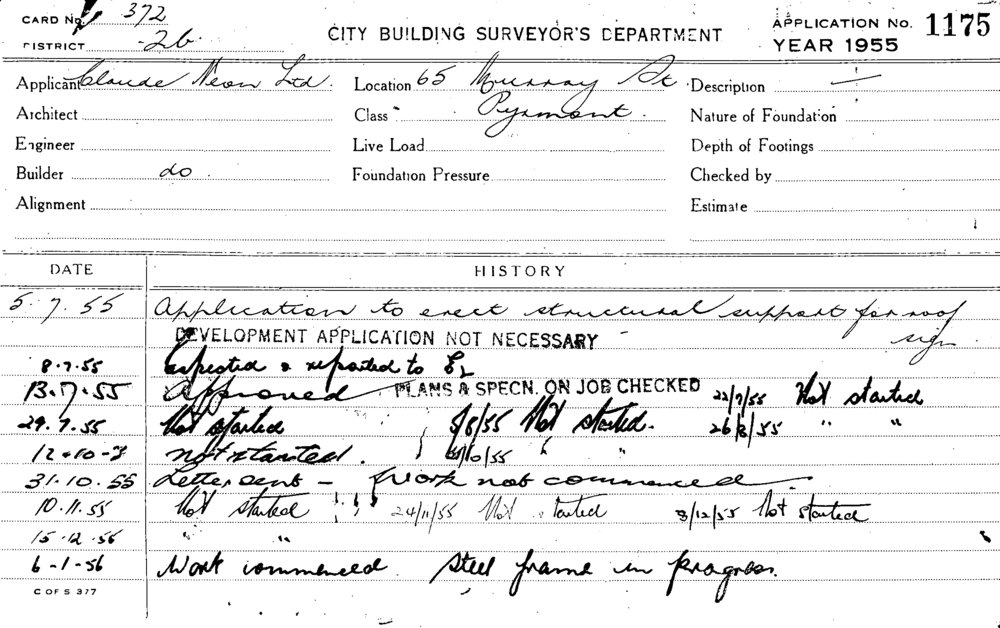 CARD No. 372
DISTRICT 26.
CITY BUILDING SURVEYOR'S DEPARTMENT
APPLICATION No. 1175
YEAR 1955
Applicant Claude Neon Ltd. Location 65 Murray St. Description —
Architect Class " Pyrmont. Nature of Foundation
Engineer Live Load Depth of Footings
Builder do. Foundation Pressure Checked by
Alignment Estimate
DATE HISTORY
5.7.55 Application to erect structural support for roof
sign
DEVELOPMENT APPLICATION NOT NECESSARY
8.7.55 Inspected & reported to
13.7.55 Approved PLANS & SPECN. ON JOB CHECKED 22/7/55 Not started
29.7.55 Not started 5/8/55 Not started. 26/8/55 " "
12-10-5 not started. /10/55 " "
31.10.55 Letter sent — Work not commenced
10.11.55 Not started 24/11/55 Not started 8/12/55 Not started
15.12.56 " "
6-1-56 Work commenced. Steel frame in progress.
C OF S 377